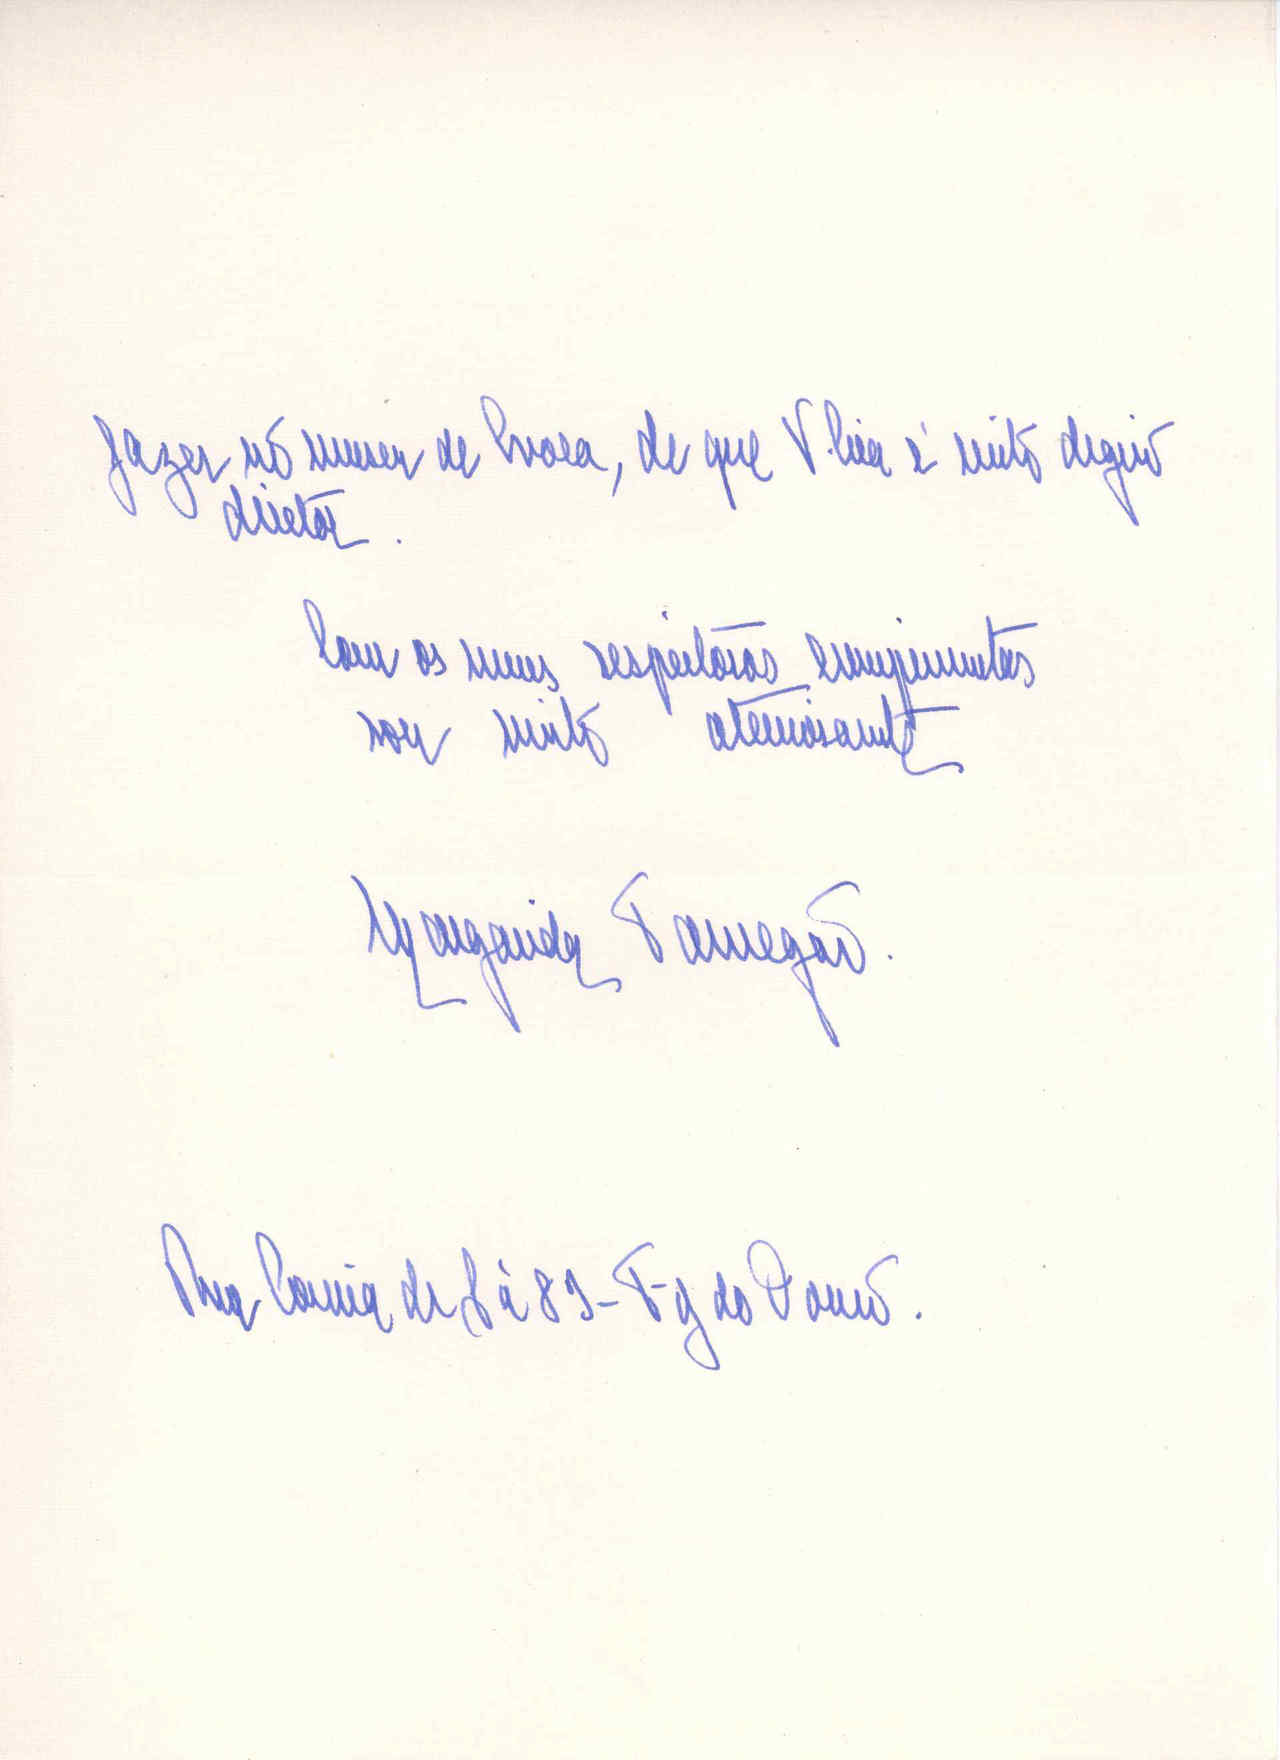 fazer no museu de Évora, de que V. Exia é muito digno
director.
Com os meus respeitosos cumprimentos
sou muito atenciosamente
Margarida Tamegão.
Rua Correia de Sá 89 - F-g do Douro.